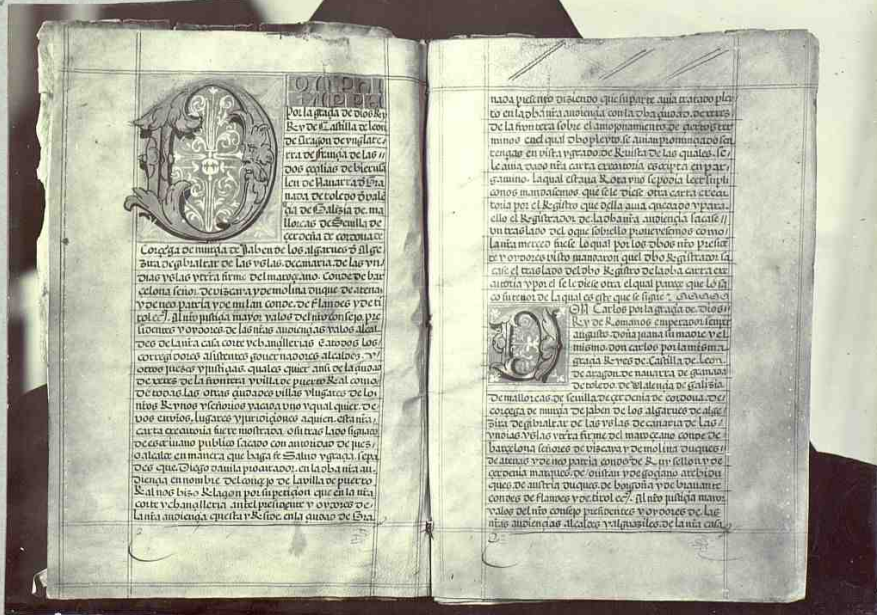 D ON PHI
LIPPE
Por la gracia de dios Rey
Rey de Castilla de leon
de aragon de ynglate
rra de francia de las
dos cecilias de hierusa
len de navarra de Gra
nada de toledo de valē
çia de Galizia de ma
llorcas de Sevilla de
cerdeña de cordova de
Corcega de murçia de Jahen de los algarues de alge
zira de gibraltar de las yslas de canaria de las yn
dias yslas y tierra firme del mar oçeano. Conde de bar
çelona señor de vizcaya y de molina duque de atenas
y de neo patria y de milan conde de flandes y de ti
rol ecᵗ. Al nrō justiçia mayor y a los del nrō consejo, pre
sidentes y oydores de las nrās audiençias y a los alcal
des de la nrā casa corte y chançillerias e a todos los
corregidores asistentes gouernadores alcaldes y
otros juezes y justiçias quales quier ansi de la çiudad
de xerez de la frontera y villa de puerto Real como
de todas las otras çiudades villas y lugares de los
nrōs Reynos y señorios y a cada vno y qualquier de
vos en vrōs lugares y jurisdiçiones a quien esta nrā
carta executoria fuere mostrada, o su traslado signado
de escriuano publico sacado con autoridad de juez
o alcalde en manera que haga fe Salud y graçia, sepa
des que Diego davila procurador, en la dha nrā au
diençia en nombre del conçejo de la villa de puerto
Real nos hizo Relaçion por su petiçion que en la nrā
corte y chançilleria ante el presidente y oydores de
la nrā audiençia que esta y Reside en la çiudad de Gra
nada presento diziendo que su parte auia tratado pley
to en la dha nrā audiençia con la dha çiudad, de xerez
de la frontera sobre el amojonamiento de çiertos ter
minos en el qual dho pleyto, se auian pronunçiado sen
tençias en vista y grado de Reuista de las quales, se
le auia dado nrā carta executoria escripta en par
gamino, la qual estaua Rota y no se podia leer supli
conos mandasemos que se le diese otra carta execu
toria por el Registro que della auia quedado y para
ello el Registrador de la dha nrā audiençia sacase
un traslado del o que sobre ello proueyesemos como
la nrā merçed fuese lo qual por los dhos nrō presidē
te y oydores visto mandaron quel dho Registrador sa
case el traslado del dho Registro de la dha carta exe
cutoria y por el se le diese otra el qual pareçe que lo sa
co su tenor de la qual es este que se sigue
DON Carlos por la graçia de dios
Rey de Romanos emperador senper
augusto, doña juana su madre y el
mismo, don carlos por la misma
graçia Reyes de Castilla de Leon,
de aragon de navarra de granada
de toledo, de Valençia de galizia
de mallorcas, de sevilla de çerdenia de cordoua, de
corçega de murçia de Jahen de los algarues de alge
zira de gibraltar de las yslas de canaria de las
yndias yslas y tierra firme del mar oçeano conde de
barçelona señores de vizcaya y de molina duques
de atenas y de neo patria conde de Ruysellon y de
çerdenia marques, de oristan y de goçiano archidu
ques, de austria duques de borgoña y de brauante
condes de flandes y de tirol ecᵗ. Al nrō justiçia mayor
y a los del nrō consejo presidentes y oydores de las
nrās audiençias alcaldes y alguaziles, de la nrā casa